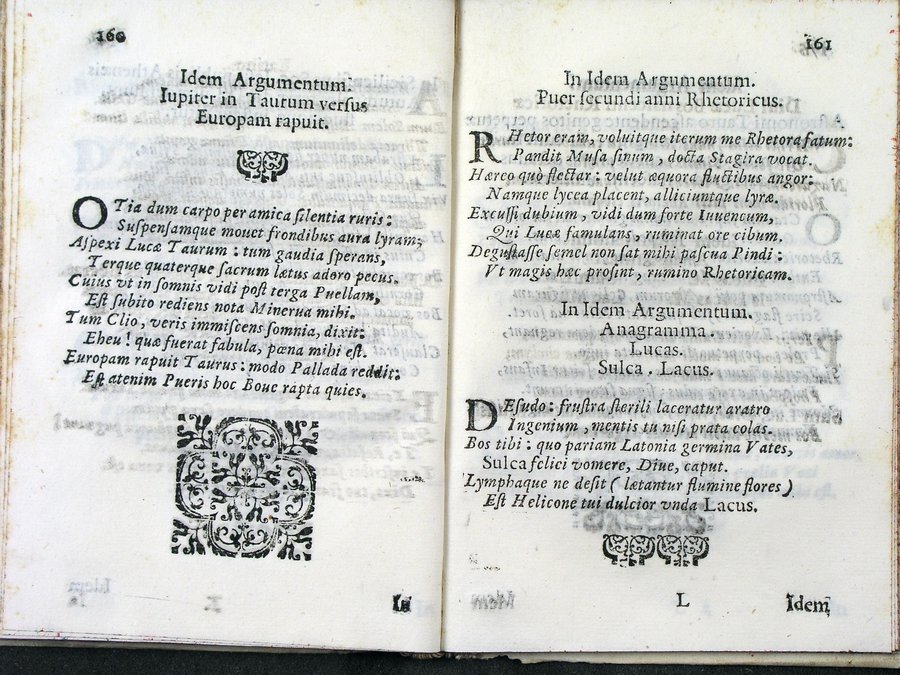 160
Idem Argumentum.
Iupiter in Taurum versus
Europam rapuit.
OTia dum carpo per amica silentia ruris:
Suspensamque mouet frondibus aura lyram;
Aspexi Lucæ Taurum: tum gaudia sperans,
Terque quaterque sacrum lætus adoro pecus.
Cuius vt in somnis vidi post terga Puellam,
Est subito rediens nota Minerua mihi.
Tum Clio, veris immiscens somnia, dixit:
Eheu! quæ fuerat fabula, pœna mihi est.
Europam rapuit Taurus: modo Pallada reddit:
Est atenim Pueris hoc Boue rapta quies.
In
161
In Idem Argumentum.
Puer secundi anni Rhetoricus.
RHetor eram, voluitque iterum me Rhetora fatum:
Pandit Musa sinum, docta Stagira vocat.
Hæreo quò flectar: velut æquora fluctibus angor:
Namque lycea placent, alliciuntque lyræ.
Excussi dubium, vidi dum forte Iuuencum,
Qui Lucæ famulans, ruminat ore cibum.
Degustasse semel non sat mihi pascua Pindi:
Vt magis hæc prosint, rumino Rhetoricam.
In Idem Argumentum.
Anagramma.
Lucas.
Sulca. Lacus.
DEsudo: frustra sterili laceratur aratro
Ingenium, mentis tu nisi prata colas.
Bos tibi: quo pariam Latonia germina Vates,
Sulca felici vomere, Diue, caput.
Lymphaque ne desit (lætantur flumine flores)
Est Helicone tui dulcior vnda Lacus.
L
Idem